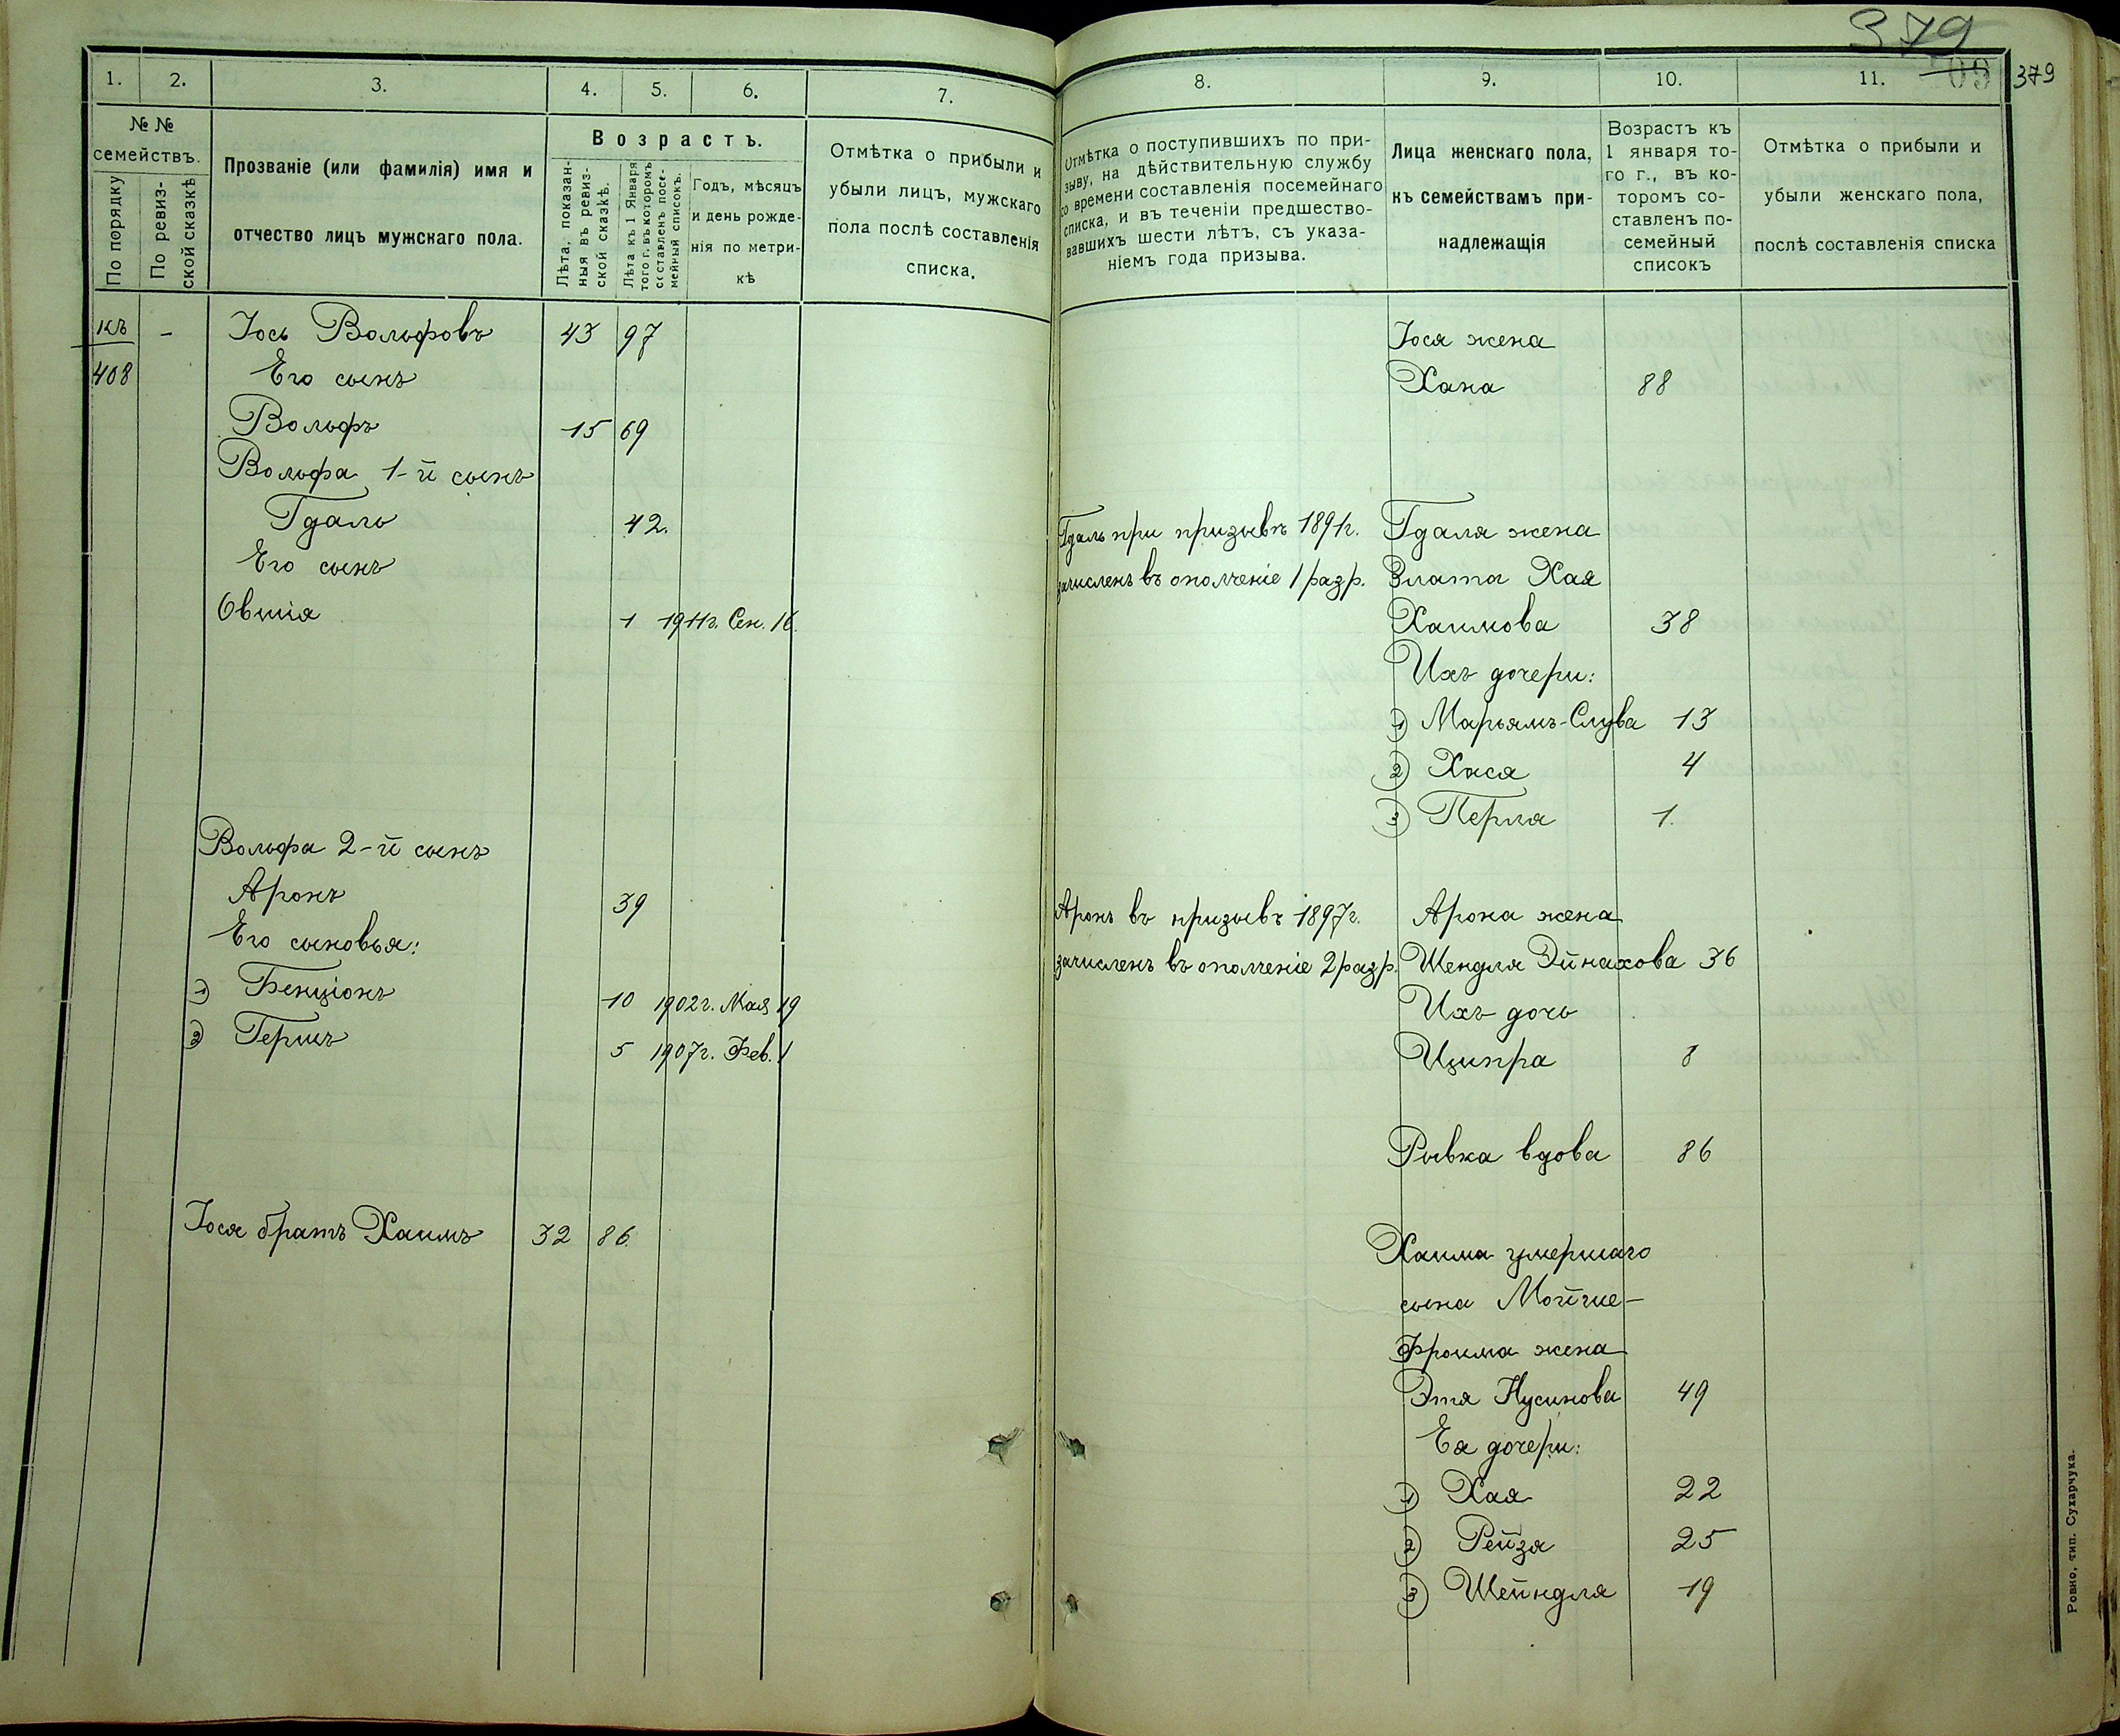 379
1. 2. 3. 4. 5. 6. 7.
№ №
семействъ.
По порядку
По ревиз-
ской сказкѣ
Прозваніе (или фамилія) имя и
отчество лицъ мужскаго пола.
Возрастъ.
Лѣта, показан-
ныя въ ревиз-
ской сказкѣ.
Лѣта къ 1 Января
того г. въ которомъ
составленъ посе-
мейный списокъ.
Годъ, мѣсяцъ
и день рожде-
нія по метри-
кѣ
Отмѣтка о прибыли и
убыли лицъ, мужскаго
пола послѣ составленія
списка.
къ - Іось Вольфовъ 43 97
408 Его сынъ
Вольфъ 15 69
Вольфа 1-й сынъ
Гдаль 42.
Его сынъ
Овшія 1 1911г. Сен. 16.
Вольфа 2-й сынъ
Аронъ 39
Его сыновья:
1) Бенціонъ 10 1902г. Мая 19
2) Гершъ 5 1907г. Фев. 1
Іося братъ Хаимъ 32 86.
8. 9. 10. 11. 379
Отмѣтка о поступившихъ по при-
зыву, на дѣйствительную службу
со времени составленія посемейнаго
списка, и въ теченіи предшество-
вавшихъ шести лѣтъ, съ указа-
ніемъ года призыва.
Лица женскаго пола,
къ семействамъ при-
надлежащія
Возрастъ къ
1 января то-
го г., въ ко-
торомъ со-
ставленъ по-
семейный
списокъ
Отмѣтка о прибыли и
убыли женскаго пола,
послѣ составленія списка
Іося жена
Хана 88
Гдаль при призывѣ 1891г. Гдаля жена
зачисленъ въ ополченіе 1 разр. Злата Хая
Хаимова 38
Ихъ дочери:
1) Марьямъ-Слува 13
2) Хася 4
3) Перля 1.
Аронъ въ призывъ 1897г. Арона жена
зачисленъ въ ополченіе 2 разр. Шендля Эйнахова 36
Ихъ дочь
Ципра 8
Рывка вдова 86
Хаима умершаго
сына Мойше-
Фроима жена
Этя Нусинова 49
Ея дочери:
1) Хая 22
2) Рейзя 25
3) Шейндля 19
Ровно, тип. Сухарчука.